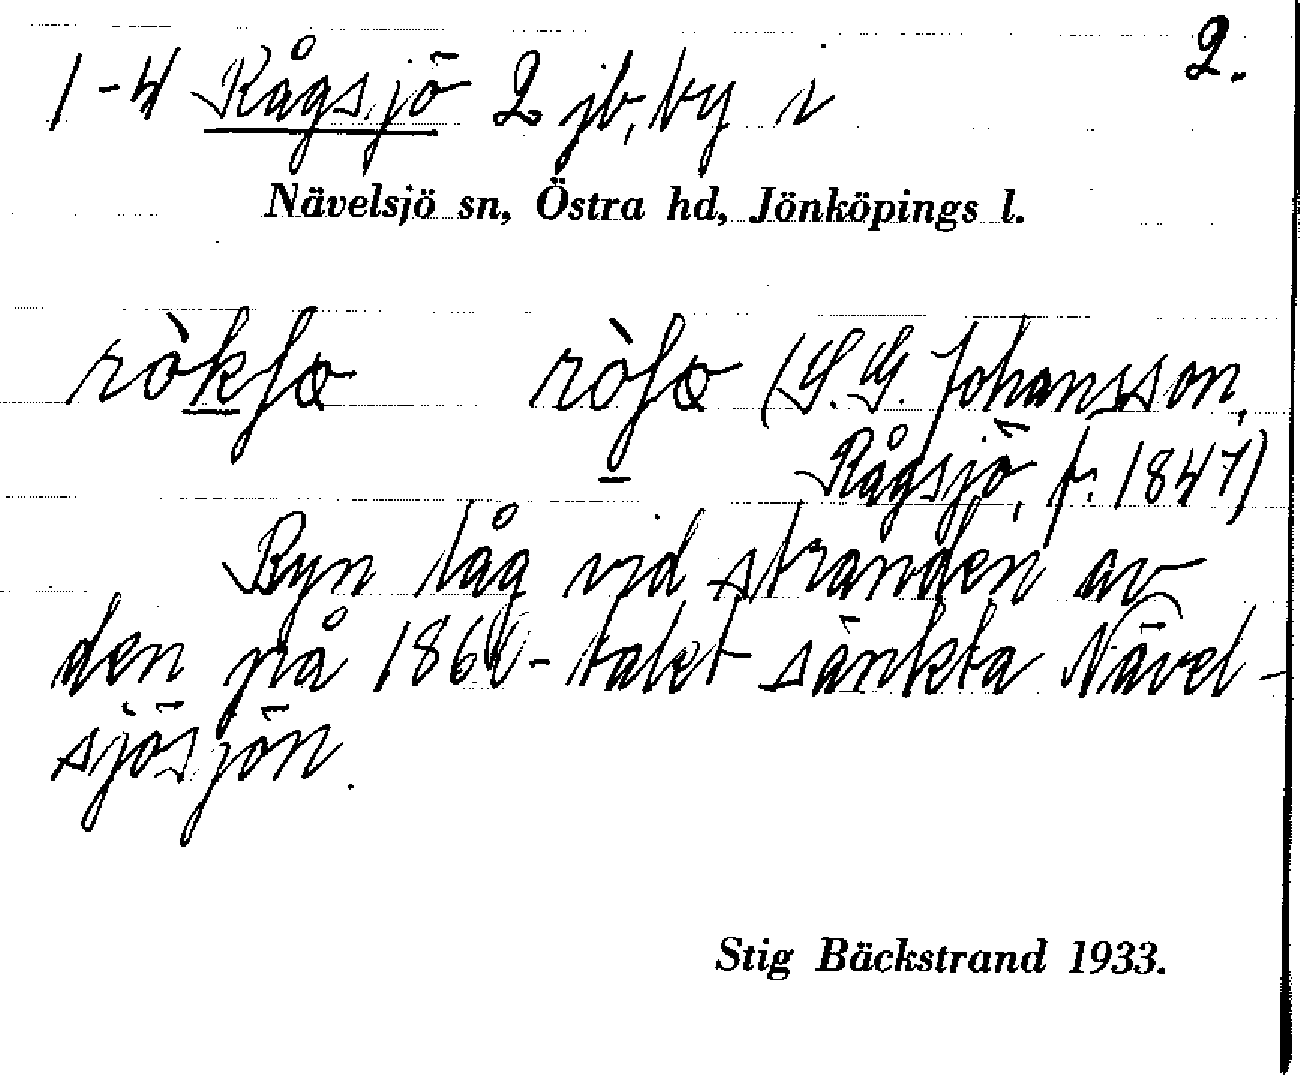 2.
1-4 Rågsjö 2 jb, by i
Nävelsjö sn, Östra hd, Jönköpings l.
ròkʃœ ròʃœ (S. G. Johansson,
Rågsjö, f. 1847)
Byn låg vid stranden av
den på 1860-talet sänkta Nävel-
sjösjön.
Stig Bäckstrand 1933.